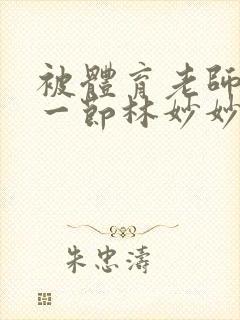 被體育老師
一節林妙妙
朱忠濤